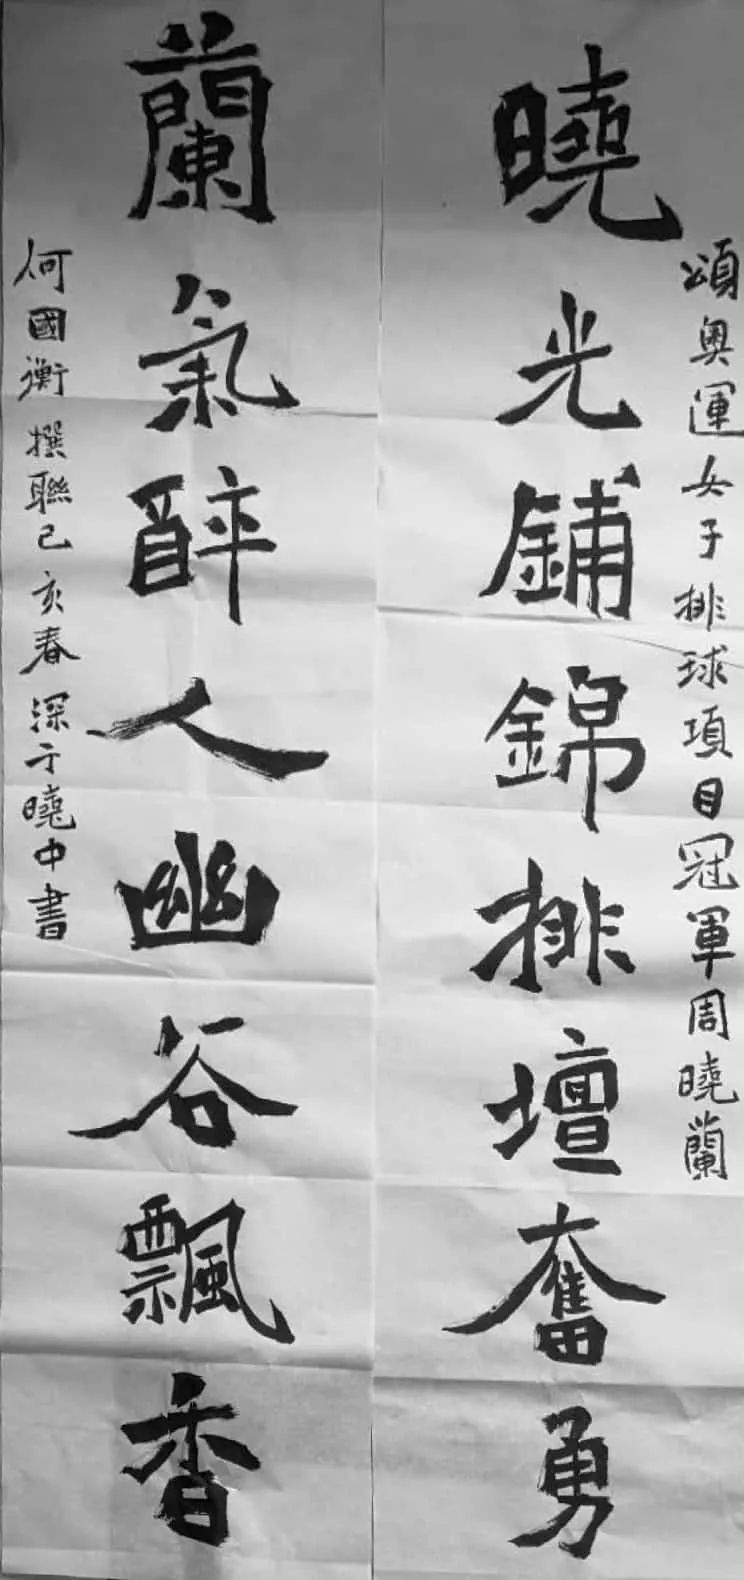 頌奧運女子排球項目冠軍周曉蘭
曉光鋪錦排壇奮勇
蘭氣醉人幽谷飄香
何國衡撰聯己亥春深于曉中書